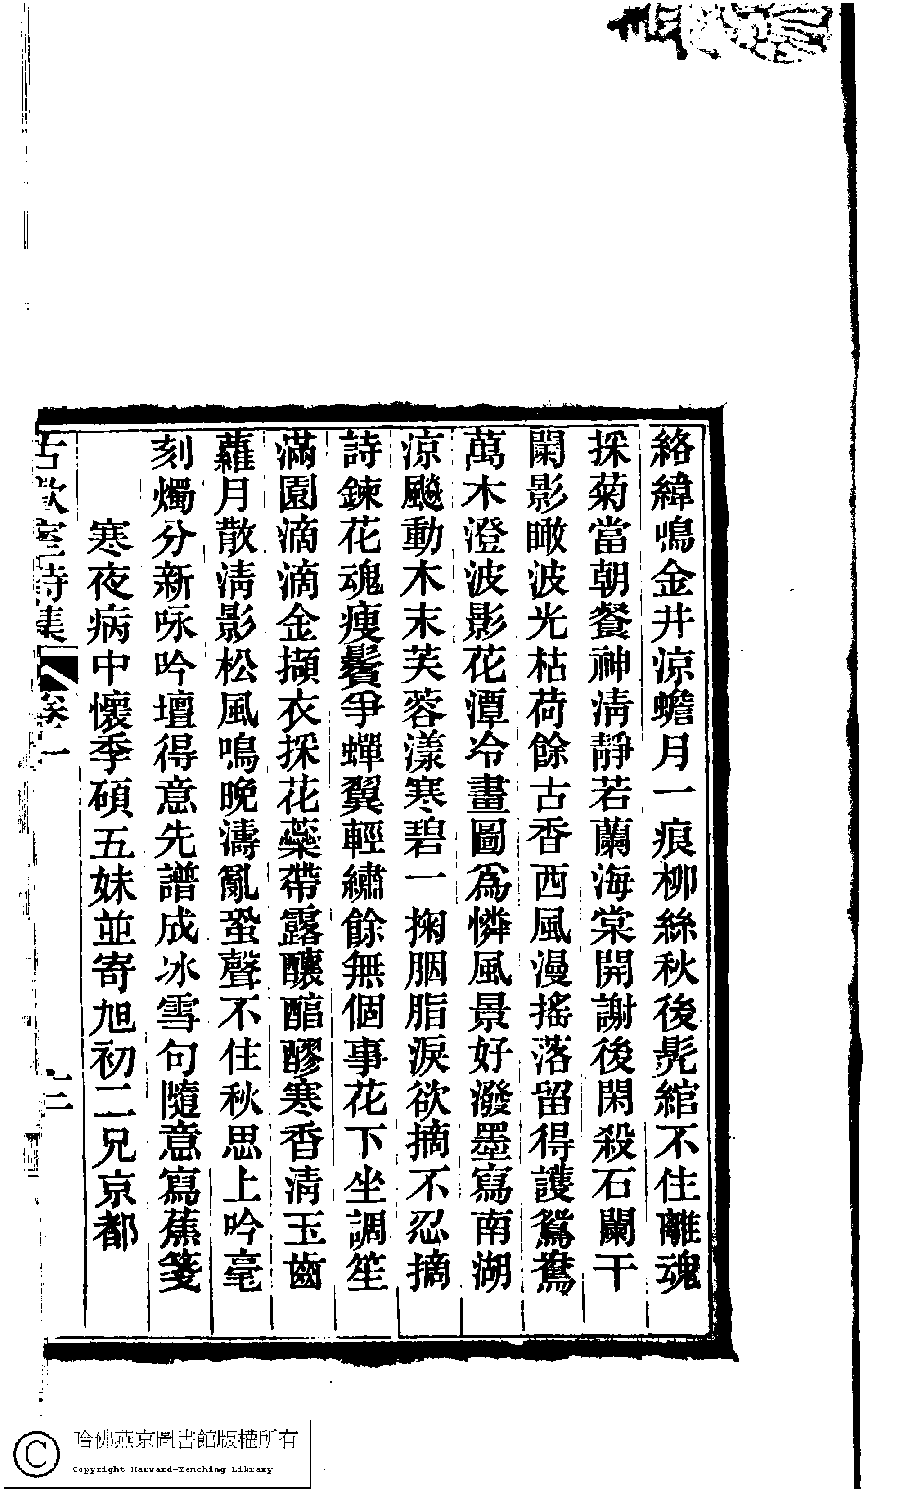 絡緯鳴金井涼蟾月一痕柳絲秋後髠綰不住離魂
採菊當朝餐神清靜若蘭海棠開謝後閑殺石闌干
闌影瞰波光枯荷餘古香西風漫搖落留得護鴛鴦
萬木澄波影花潭冷畫圖爲憐風景好潑墨寫南湖
涼颸動木末芙蓉漾寒碧一掬胭脂淚欲摘不忍摘
詩鍊花魂瘦鬢爭蟬翼輕繡餘無個事花下坐調笙
滿園滴滴金擷衣採花蘂帶露釀醅醪寒香清玉齒
蘿月散清影松風鳴晚濤亂蛩聲不住秋思上吟毫
刻燭分新咏吟壇得意先譜成冰雪句隨意寫蕉箋
寒夜病中懷季碩五妹並寄旭初二兄京都
古歡室詩集 卷一 十三
哈佛燕京圖書館版權所有
Copyright Harvard-Yenching Library